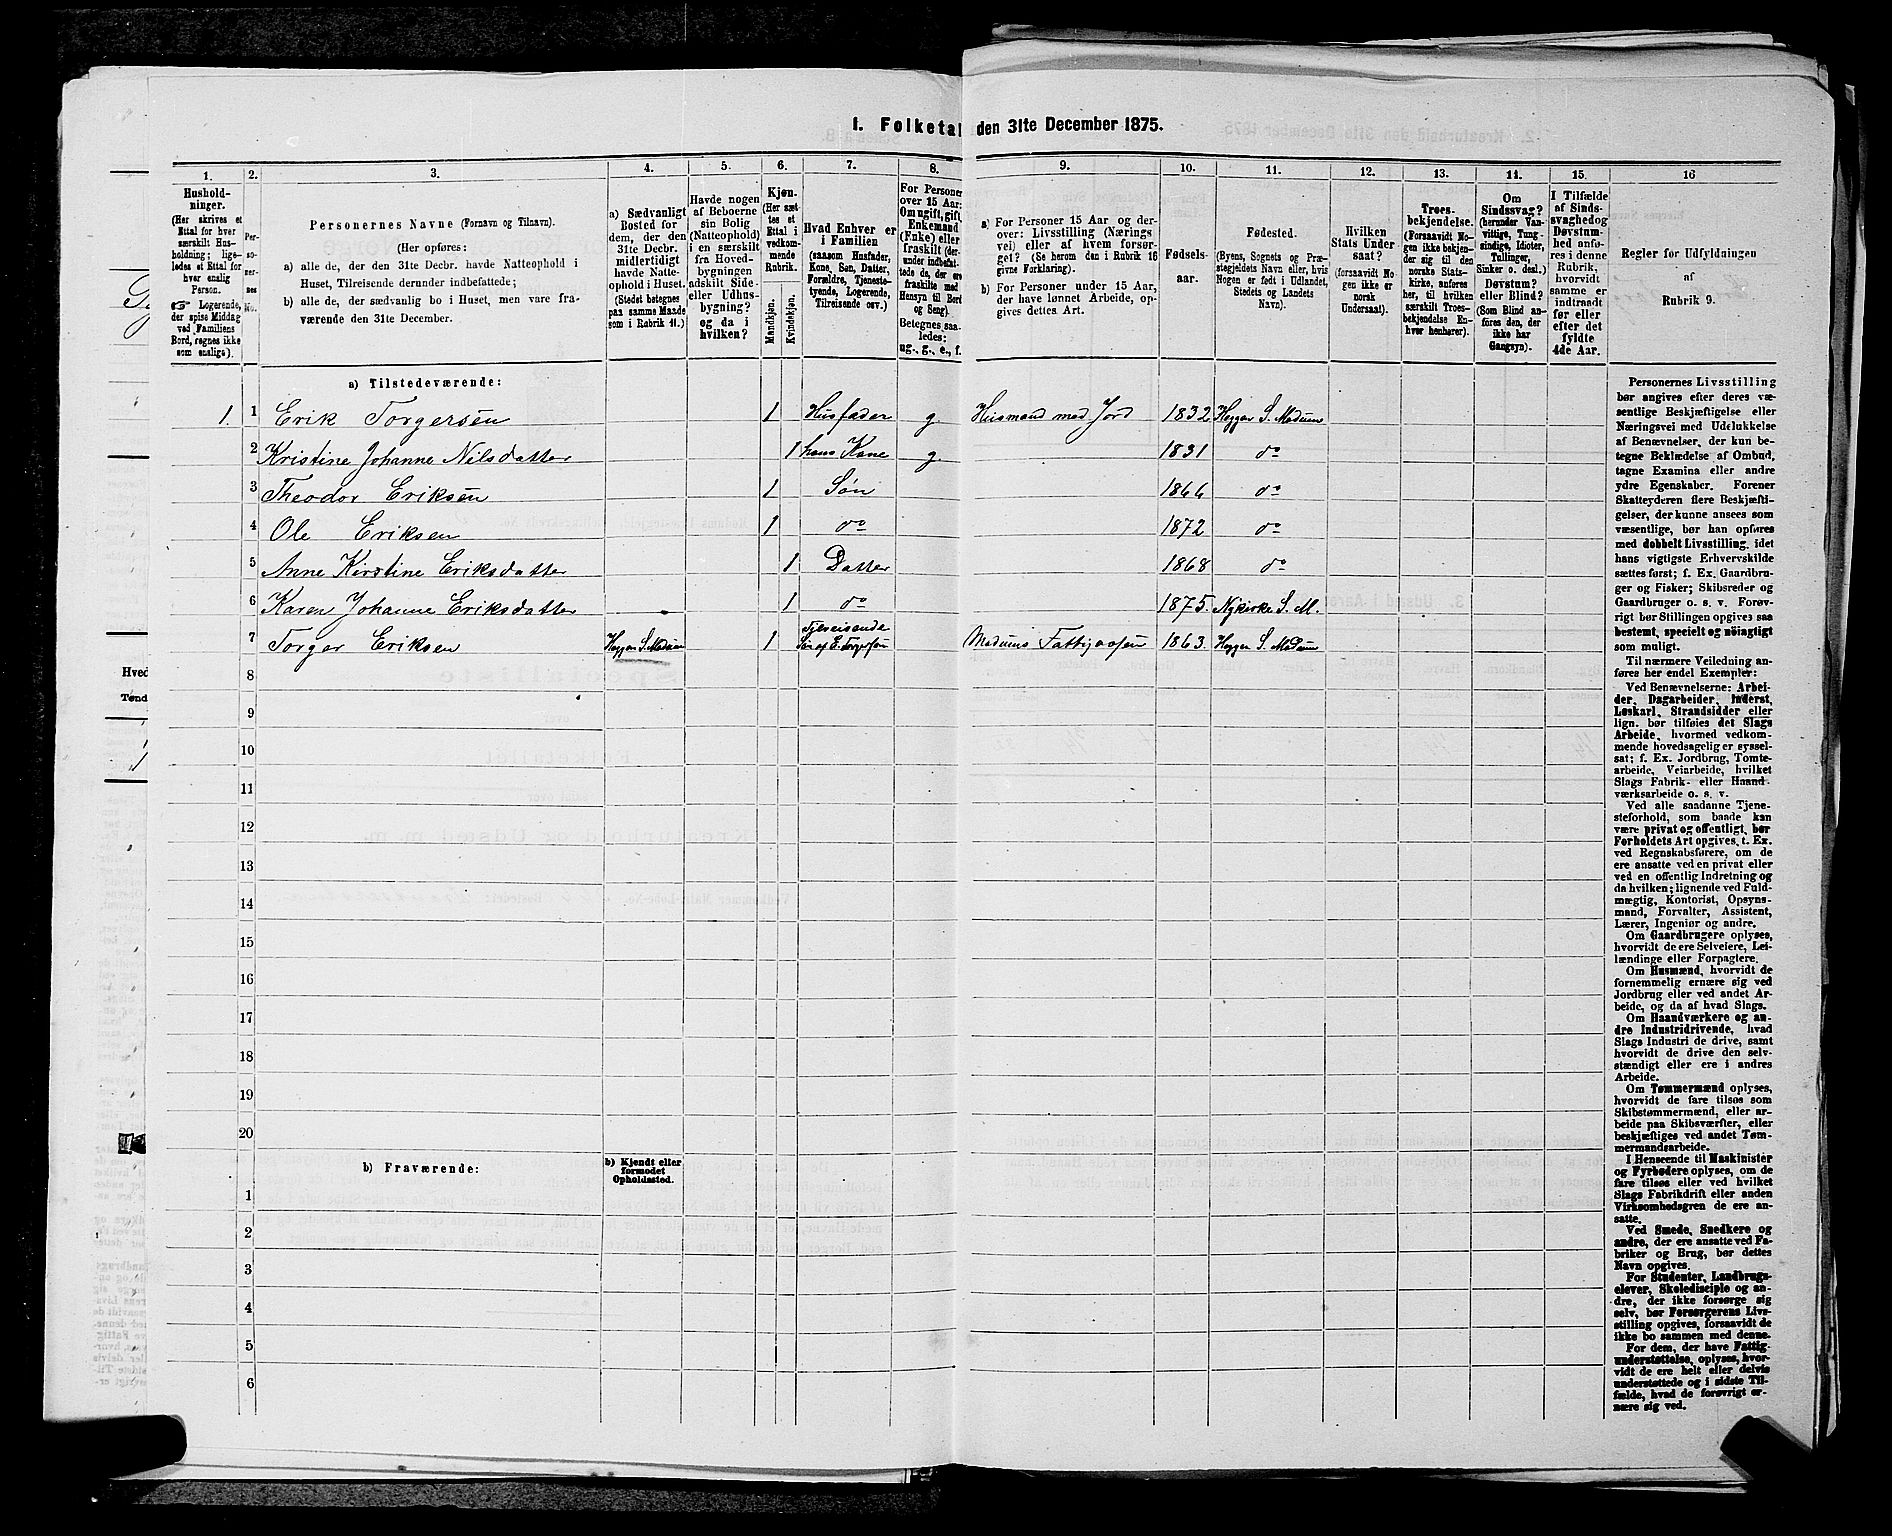 1. Folketal den 31te December 1875.
1. 2. 3. 4. 5. 6. 7. 8. 9. 10. 11. 12. 13. 14. 15. 16
Hushold-
ninger.
(Her skrives et
Ettal for hver
særskilt Hus-
holdning; lige-
ledes et Ettal for
hver enslig
Person.
☞ Logerende,
der spise Middag
ved Familiens
Bord, regnes ikke
som enslige).
Per-
so-
ner-
nes
No.
Personernes Navne (Fornavn og Tilnavn).
(Her opføres:
a) alle de, der den 31te Decbr. havde Natteophold i
Huset, Tilreisende derunder indbefattede;
b) alle de, der sædvanlig bo i Huset, men vare fra-
værende den 31te December.
a) Sædvanligt
Bosted for
dem, der den
31te Decbr.
midlertidigt
havde Natte-
ophold i Huset.
(Stedet betegnes
paa samme Maade
som i Rubrik 11.)
Havde nogen
af Beboerne
sin Bolig
(Natteophold)
i en særskilt
fra Hoved-
bygningen
adskilt Side-
eller Udhus-
bygning?
og da i
hvilken?
Kjøn.
(Her sæt-
tes et
Ettal i
vedkom-
mende
Rubrik.
Mandkjøn.
Kvindekjøn.
Hvad Enhver er
i Familien
(saasom Husfader,
Kone, Søn, Datter,
Forældre, Tjeneste-
tyende, Logerende,
Tilreisende osv.)
For Personer
over 15 Aar:
Om ugift, gift,
Enkemand
(Enke) eller
fraskilt (der-
under indbefat-
tede de, der ere
fraskilte med
Hensyn til Bord
og Seng).
Betegnes saa-
ledes:
ug., g., e., f.
a) For Personer 15 Aar og der-
over: Livsstilling (Nærings-
vei) eller af hvem forsør-
get? (Se herom den i Rubrik 16
givne Forklaring).
b) For Personer under 15 Aar,
der have lønnet Arbeide, op-
gives dettes Art.
Fødsels-
aar.
Fødested.
(Byens, Sognets og Præ-
stegjeldets Navn eller, hvis
Nogen er født i Udlandet,
Stedets og Landets
Navn).
Hvilken
Stats Under-
saat?
(forsaavidt No-
gen ikke er
norsk
Undersaat).
Troes-
bekjendelse.
(Forsaavidt No-
gen ikke bekjen-
der sig til den
norske Stats-
kirke, anføres
her, til hvilken
særskilt Troes-
bekjendelse En-
hver henhører).
Om
Sindssvag?
(herunder Van-
vittige, Tung-
sindige, Idioter,
Tullinger,
Sinker o. desl.)
Døvstum?
eller Blind?
(Som Blind an-
føres den, der
ikke har
Gangsyn).
I Tilfælde
af Sinds-
svaghed og
Døvstum-
hed anfø-
res i denne
Rubrik,
hvorvidt
samme er
indtraadt
før eller
efter det
fyldte
4de Aar.
Regler for Udfyldningen
af
Rubrik 9.
a) Tilstedeværende:
1. 1 Erik Torgersen 1 Husfader g. Husmand med Jord 1832 Heggen S. Modum
2 Kristine Johanne Nilsdatter 1 hans Kone g. 1831 do
3 Theodor Eriksen 1 Søn 1866 do
4 Ole Eriksen 1 do 1872 do
5 Anne Kirstine Eriksdatter 1 Datter 1868 do
6 Karen Johanne Eriksdatter 1 do 1875. Nykirke S. M.
7 Torger Eriksen Heggen S. Modum 1 Tilreisende Søn af E. Torgersen Modums 1863. Heggen S. Modum
8
9
10
11
12
13
14
15
16
17
18
19
20
b) Fraværende:
b) Kjendt eller
formodet
Opholdssted.
1
2
3
4
5
6
Personernes Livsstilling
bør angives efter deres væ-
sentlige Beskjæftigelse eller
Næringsvei med Udelukkelse
af Benævnelser, der kun be-
tegne Beklædelse af Ombud,
tagne Examina eller andre
ydre Egenskaber. Forener
Skatteyderen flere Beskjæfti-
gelser, der kunne ansees som
væsentlige, bør han opføres
med dobbelt Livsstilling, idet
hans vigtigste Erhvervskilde
sættes først; f. Ex. Gaardbru-
ger og Fisker; Skibsreder og
Gaardbruger o. s. v. Forøv-
rigt bør Stillingen opgives saa
bestemt, specielt og nøiagtigt
som muligt.
Til nærmere Veiledning an-
føres her endel Exempler:
Ved Benævnelserne: Arbei-
der, Dagarbeider, Inderst,
Løskarl, Strandsidder eller
lign. bør tilføies det Slags
Arbeide, hvormed vedkom-
mende hovedsagelig er syssel-
sat; f. Ex. Jordbrug, Tomte-
arbeide, Veiarbeide, hvilket
Slags Fabrik- eller Haand-
værksarbeide o. s. v.
Ved alle saadanne Tjene-
steforhold, som baade kan
være privat og offentligt, bør
Forholdets Art opgives, t. Ex.
ved Regnskabsførere, om de
ere ansatte ved en privat eller
ved en offentlig Indretning og
da hvilken; lignende ved Fuld-
mægtig, Kontorist, Opsyns-
mand, Forvalter, Assistent,
Lærer, Ingeniør og andre.
Om Gaardbrugere oplyses,
hvorvidt de ere Selveiere, Lei-
lændinge eller Forpagtere.
Om Husmænd, hvorvidt de
fornemmelig ernære sig ved
Jordbrug eller ved andet Ar-
beide, og da af hvad Slags.
Om Haandværkere og an-
dre Industridrivende, hvad
Slags Industri de drive, samt
hvorvidt de drive den selv-
stændigt eller ere i andres
Arbeide.
Om Tømmermænd oplyses,
hvorvidt de fare tilsøs som
Skibstømmermænd, eller ar-
beide paa Skibsværfter, eller
beskjæftiges ved andet Tøm-
mermandsarbeide.
I Henseende til Maskinister
og Fyrbødere oplyses, om de
fare tilsøs eller ved hvilket
Slags Fabrikdrift eller anden
Virksomhedsgren de ere an-
satte.
Ved Smede, Snedkere og
andre, der ere ansatte ved Fa-
briker og Brug, bør dettes
Navn opgives.
For Studenter, Landbrugs-
elever, Skoledisciple og an-
dre, der ikke forsørge sig
selv, bør Forsørgerens Livs-
stilling opgives, forsaavidt de
ikke bo sammen med denne.
For dem, der have Fattig-
understøttelse, oplyses, hvor-
vidt de ere helt eller delvis
understøttede og i sidste Til-
fælde, hvad de forøvrigt er-
nære sig ved.
Hved
Tønd